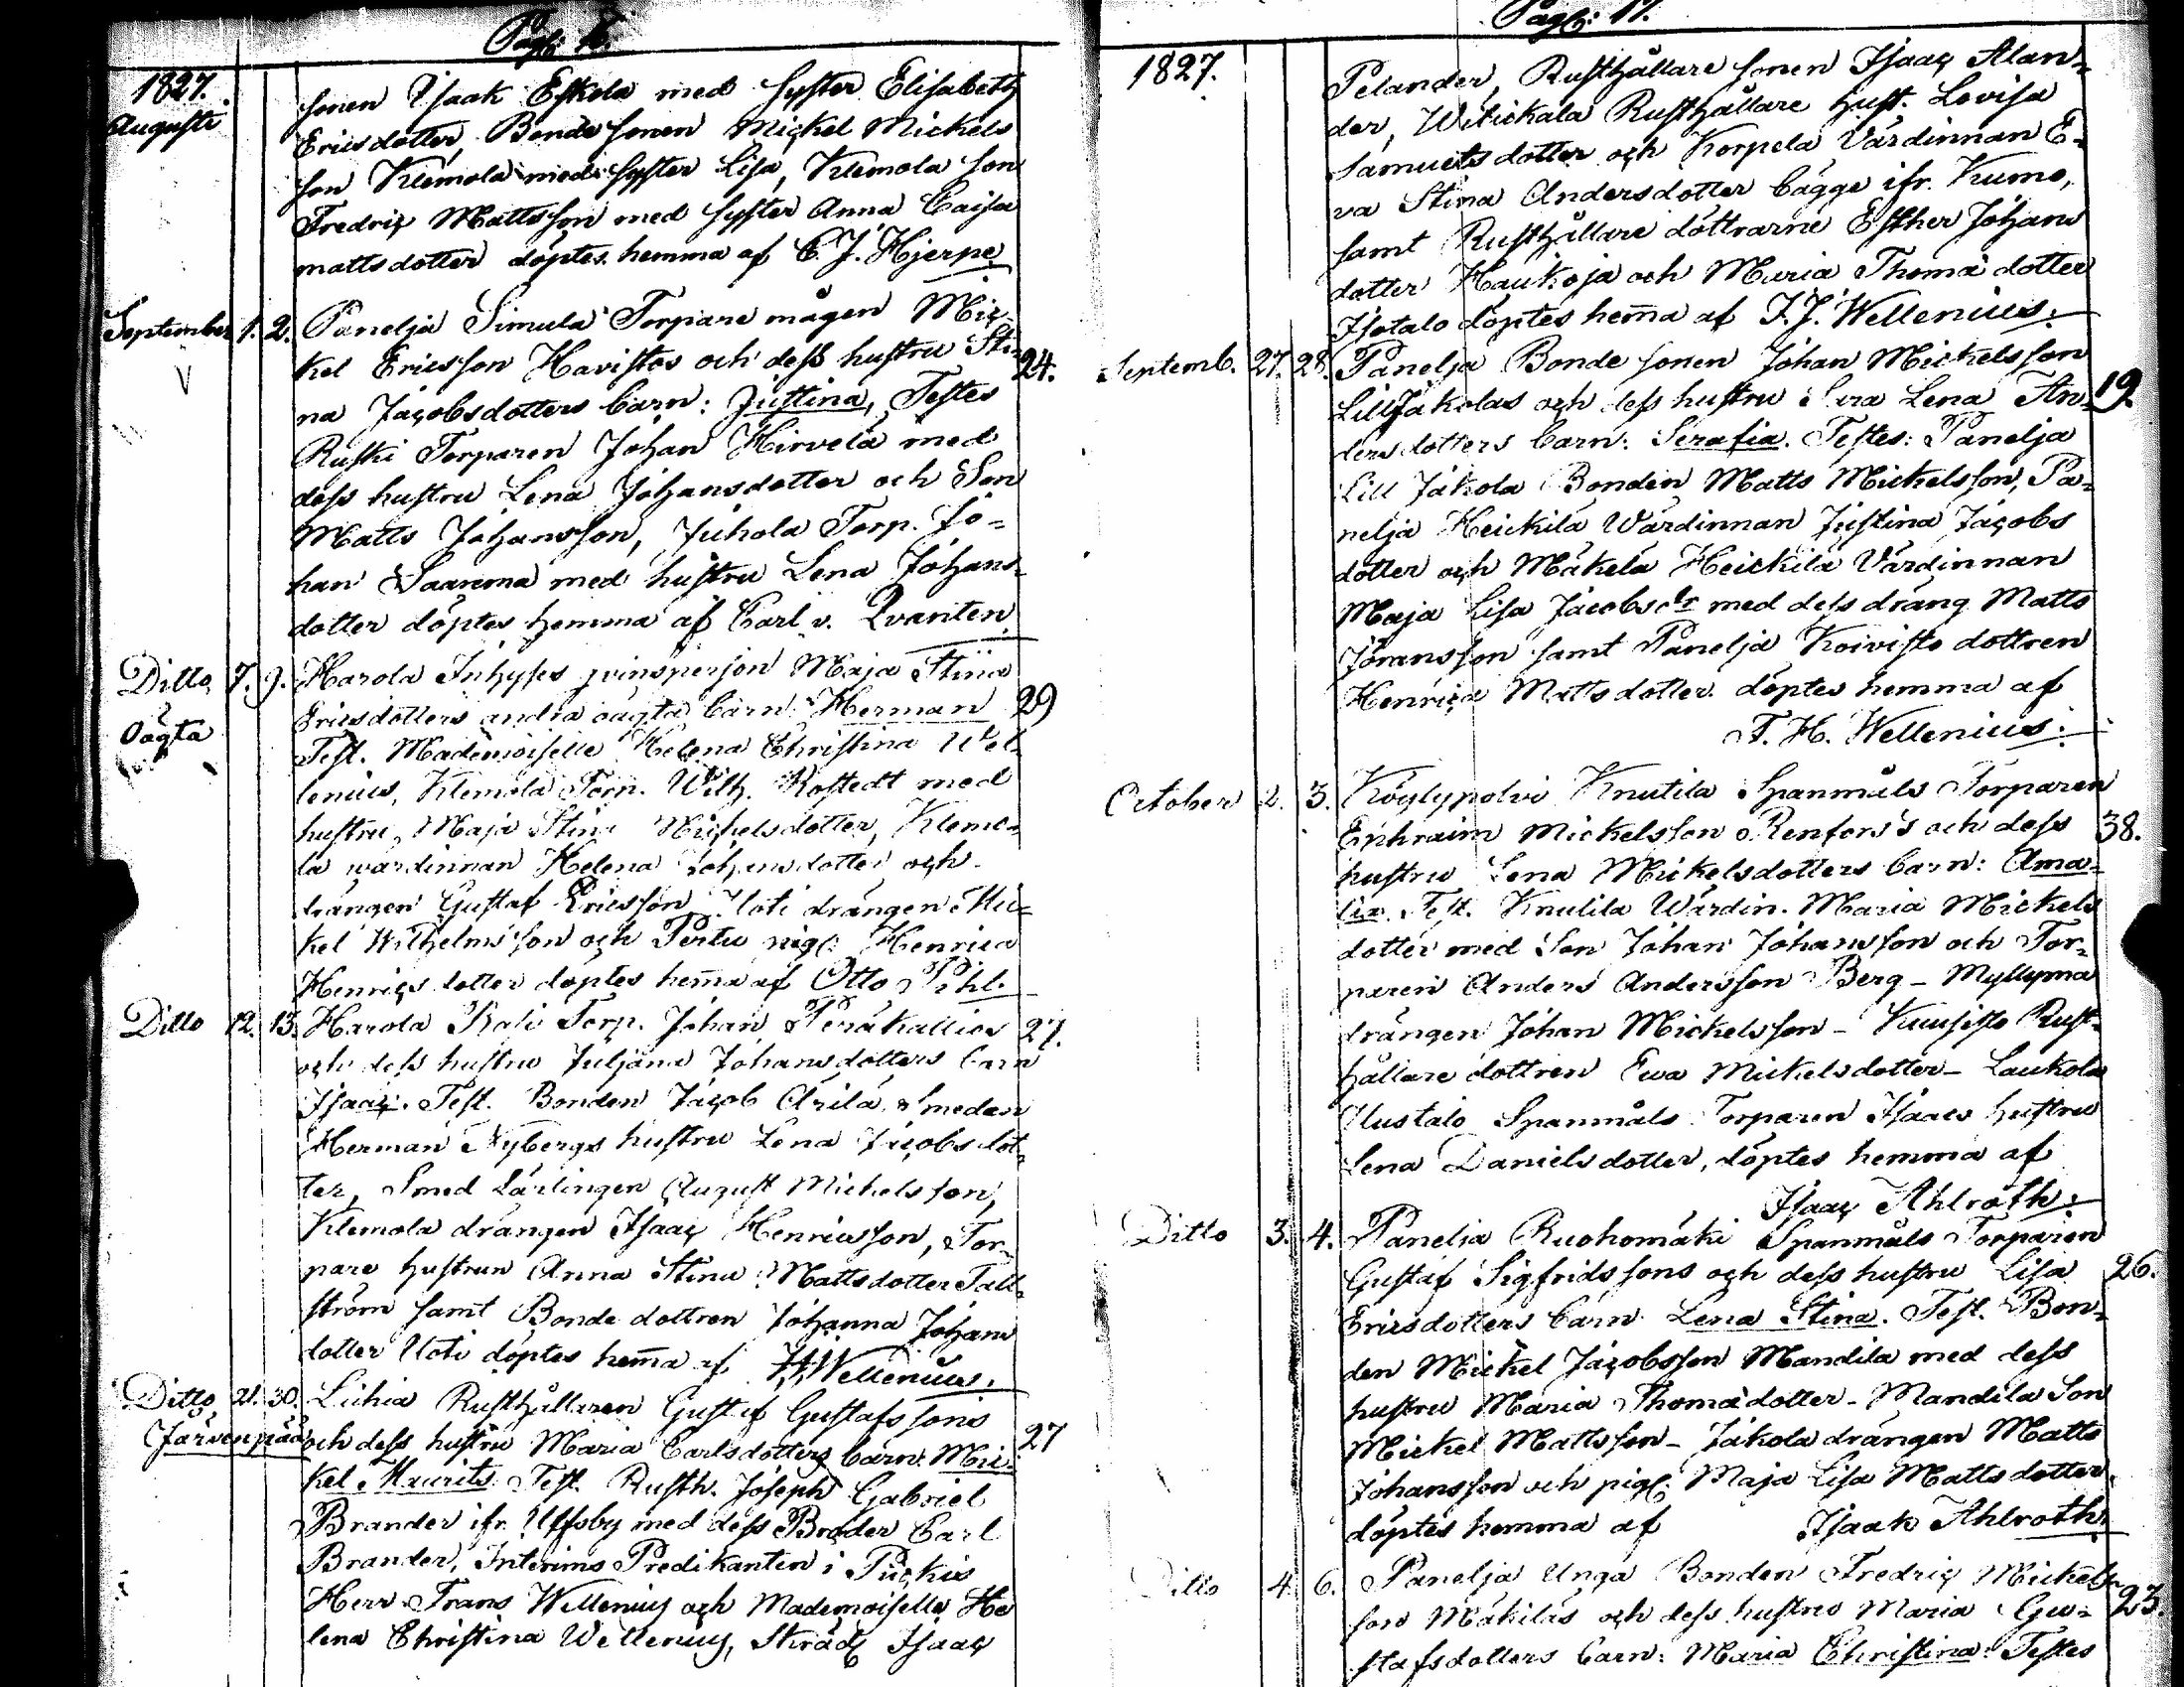 Pag: 16.
1827.
Augusti
sonen Isaak Eskola med syster Elisabeth
Ericsdotter, Bonde sonen Mickel Mickels
son Klemola med syster Lisa, Klemola son
Fredric Mattsson med syster Anna Caisa
mattsdotter döptes hemma af C. J. Hjerpe
September 1. 2. Panelja Simula Torpare mågen Mic-
kel Ericsson Havistos och dess hustru Sti- 24.
na Jacobsdotters barn: Justina, Testes
Ruski Torparen Johan Hirvelä med
dess hustru Lena Johansdotter och Son
Matts Johansson, Juhola Torp. Jo=
han Saarema med hustru Lena Johans-
dotter döptes hemma af Carl v. Qvanten
Ditto 7. 9. Harola Inhyses qvinsperson Maja Stina
Oägta
Ericsdotters andra oägta barn: Herman 29
Test. Mademoiselle Helena Christina Wel-
lenius, Klemola Torp. Wilh. Rostedt med
hustru Maja Stina Michelsdotter, Klemo-
la wärdinnan Helena Johansdotter och
drängen Gustaf Ericsson, Uoti drängen Mic-
kel Wilhelmsson och Perttu pig: Henrica
Henricsdotter döptes hema af Otto Pihl.
Ditto 12. 13. Harola Torp. Johan Peräkallios 27.
och dess hustru Juljana Johansdotters barn
Isaac. Test. Bonden Jacob Arila, Smeden
Herman Nybergs hustru Lena Jacobsdot-
ter, Smed Lärlingen August Michelsson,
Klemola drängen Isaac Henricsson, Tor-
pare hustrun Anna Stina Mattsdotter Tall-
ström samt Bonde dottren Johanna Johans
dotter Uoti döptes hema af Wellenius.
Ditto 21. 30. Lichia Rusthållaren Gustaf Gustafssons
Järvenpää
och dess hustru Maria Carlsdotters barn: Mic- 27
kel Maurits. Test. Rusth. Joseph Gabriel
Brander ifr. Ulfsby med dess Broder Carl
Brander, Interims Predikanten i Påckis
Herr Frans Wellenius och Mademoiselle He
lena Christina Wellenius, Skrädd Isaac
Pag: 17.
1827.
Pelander, Rusthållare sonen Isaac Alan-
der, Witickala Rusthållare Hust. Lovisa
Samuelsdotter och Korpela Värdinnan E-
va Stina Andersdotter Cägge ifr. Kumo,
samt Rusthållare döttrarne Esther Johans
dotter Haukoja och Maria Thomä dotter
Isotalo döptes hema af F. J. Wellenius.
Septemb. 27. 28. Panelja Bonde sonen Johan Mickelsson
Lill Jakolas och dess hustru Eva Lena An- 19.
dersdotters barn: Serafia. Testes: Panelja
Lill Jakola Bonden Matts Mickelsson, Pa-
nelja Heickilä Wärdinnan Justina Jacobs
dotter och Mäkelä Heickilä Värdinnan
Maja Lisa Jacobsdr med dess dräng Matts
Göransson samt Panelja Koivisto dottren
Henrica Mattsdotter döptes hemma af
F. H. Wellenius.
October 2. 3. Köylypolvi Knutila Spanmåls Torparen
Ephraim Mickelsson Renfors's och dess 38.
hustru Lena Mickelsdotters barn: Ama-
lia. Test. Knutila Wärdin. Maria Mickels
dotter med Son Johan Johansson och Tor-
paren Anders Andersson Berg - Myllymaa
drängen Johan Mickelsson - Kuusisto Rust-
hållare dottren Ewa Mickelsdotter - Laukola
Uustalo Spanmåls Torparen Isaacs hustru
Lena Danielsdotter, döptes hemma af
Isaac Ahlroth.
Ditto 3. 4. Panelja Ruohomäki Spanmåls Torparen
Gustaf Sigfridssons och dess hustru Lisa 26.
Ericsdotters barn Lena Stina. Test. Bon-
den Mickel Jacobsson Mandila med dess
hustru Maria Thomädotter - Mandila Son
Mickel Mattsson - Jakola drängen Matts
Johansson och pig: Maja Lisa Mattsdotter
döptes hemma af Isaak Ahlroth.
Ditto 4. 6. Panelja Unga Bonden Fredric Mickels-
son Mäkiläs och dess hustru Maria Gu- 23.
stafsdotters barn: Maria Christina. Testes